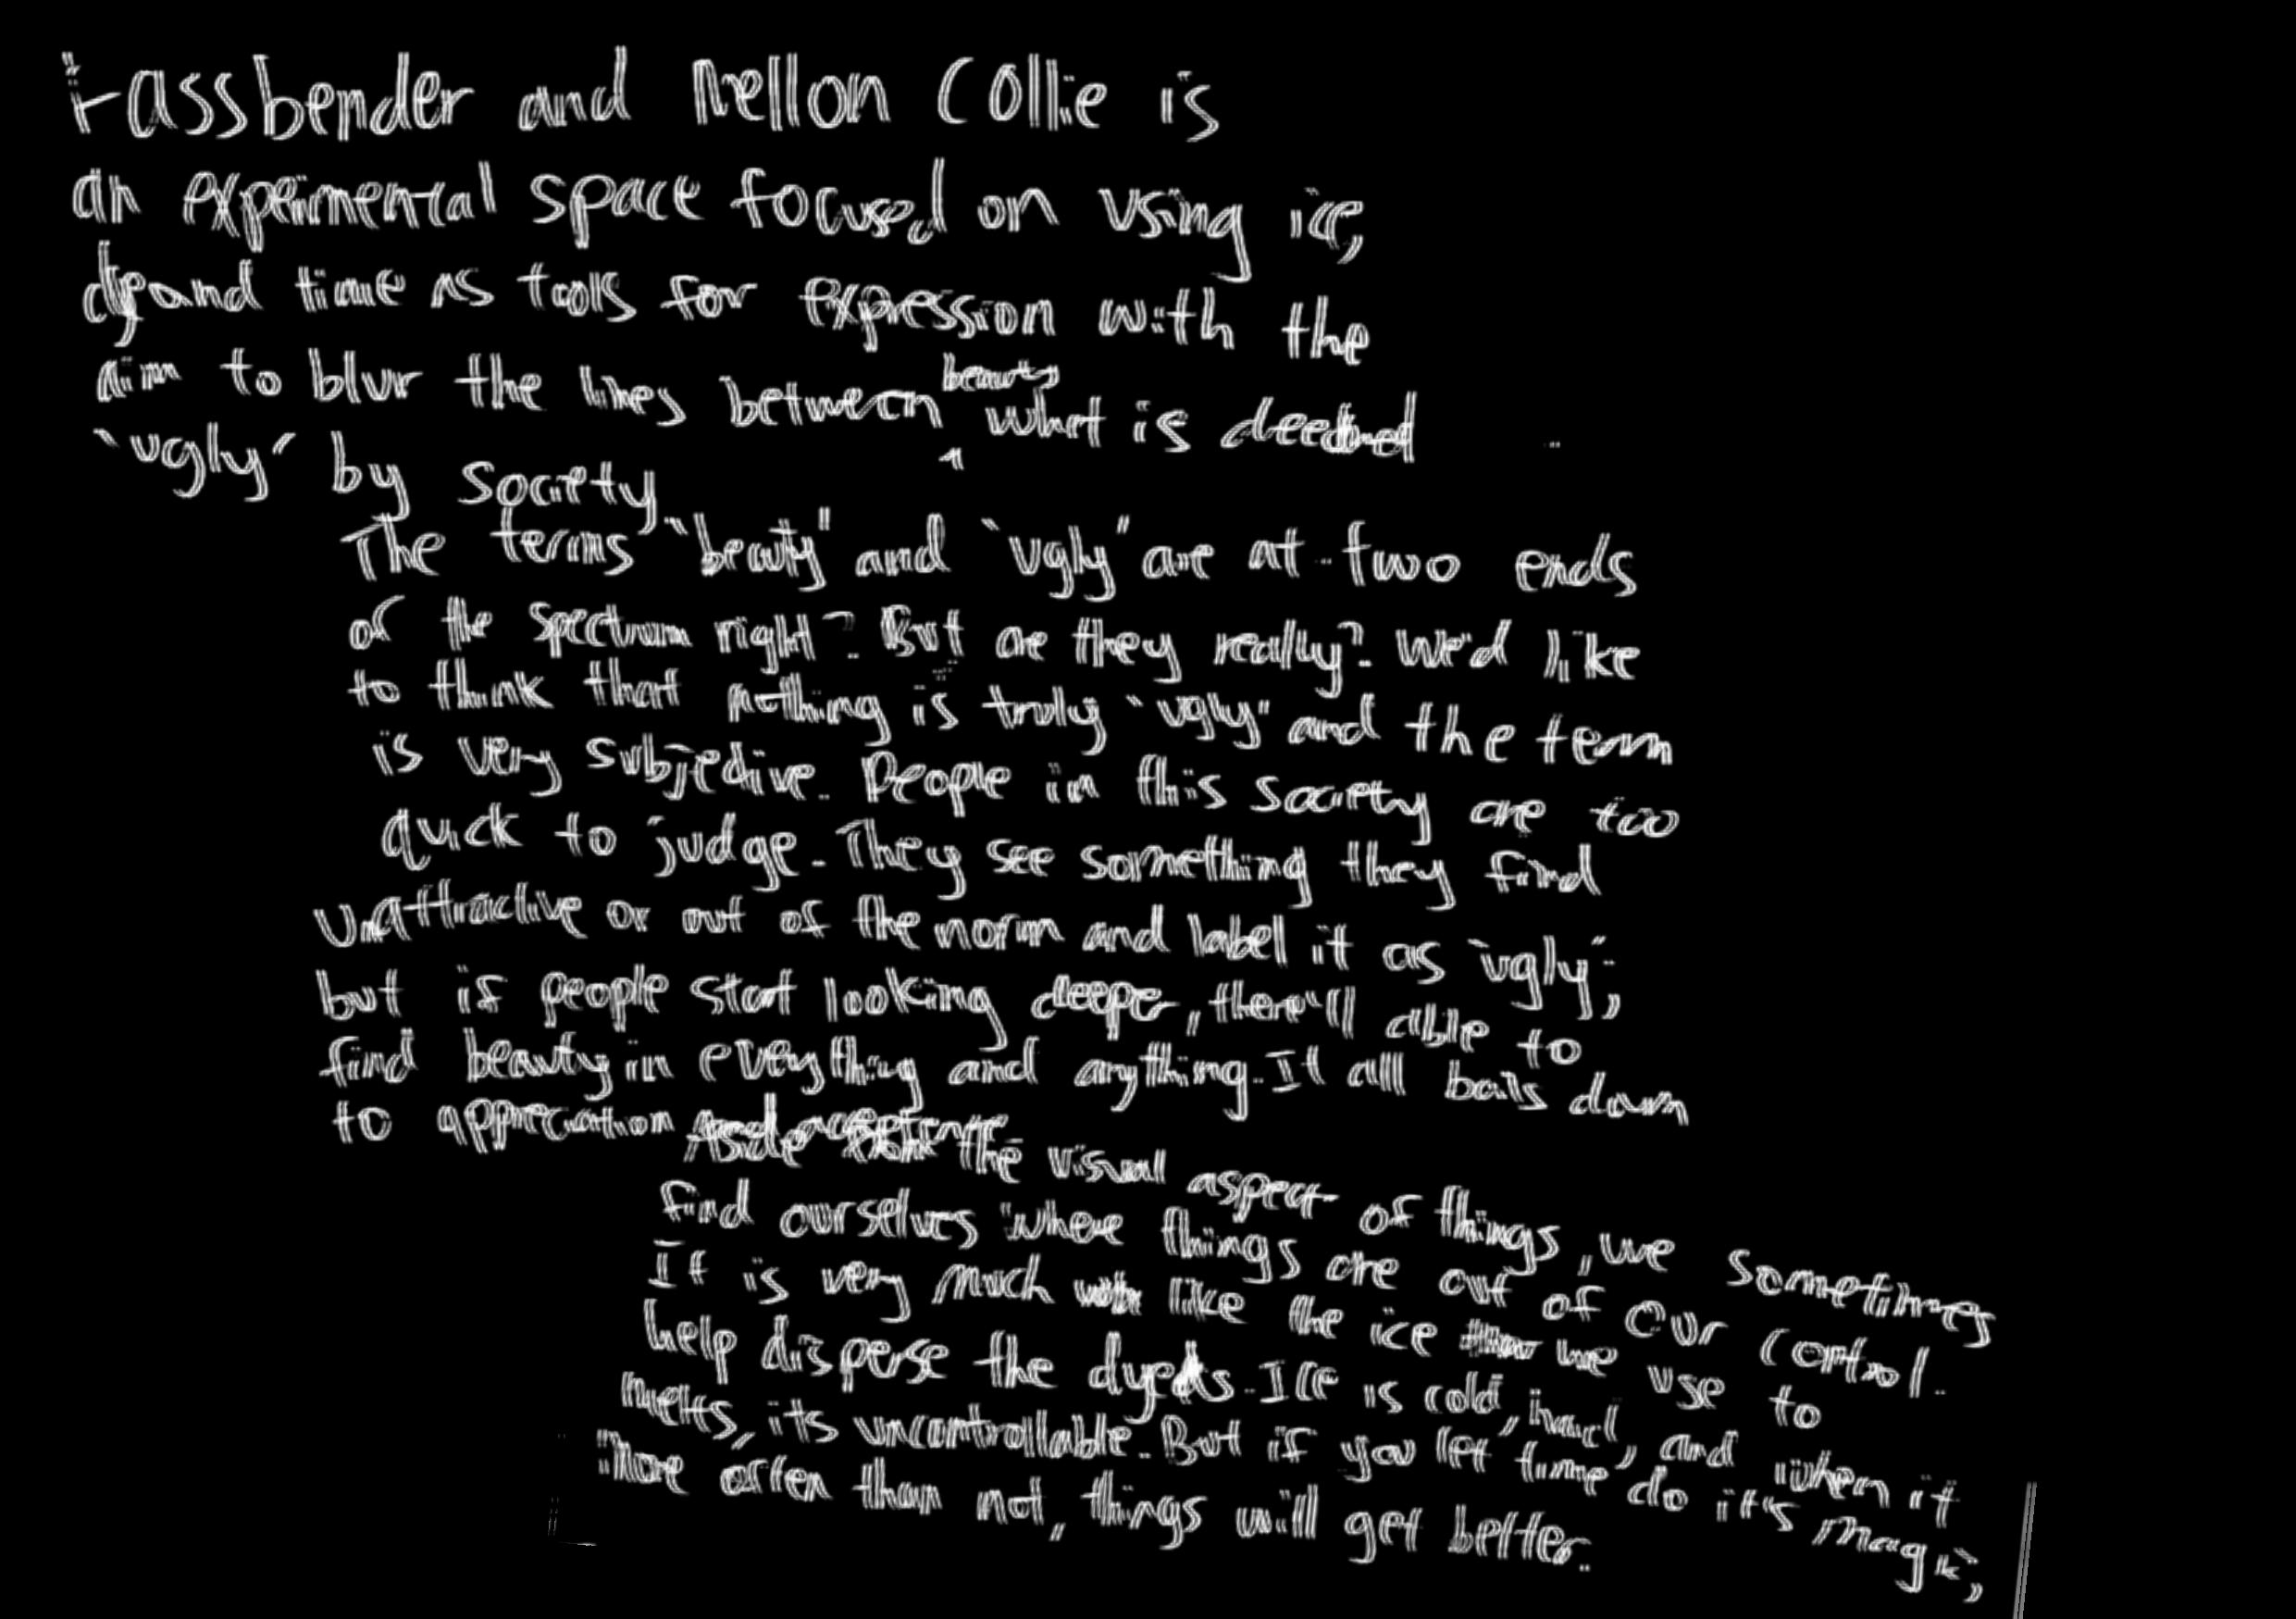 Fassbender and Mellon Collie is
an experimental space focused on using ice,
dye and time as tools for expression with the
aim to blur the lines between beauty what is deemed
"ugly" by society.
The terms "beauty" and "ugly" are at two ends
of the spectrum right? But are they really? We'd like
to think that nothing is truly "ugly" and the term
is very subjective. People in this society are too
quick to judge. They see something they find
unattractive or out of the norm and label it as "ugly";
but if people start looking deeper, there'll able to
find beauty in everything and anything. It all boils down
to appreciation and acceptance
Aside from the visual aspect of things, we sometimes
find ourselves where things are out of our control.
It is very much like the ice we use to
help disperse the dyes. Ice is cold, hard, and when it
melts, its uncontrollable. But if you let time do it's magic,
more often than not, things will get better.